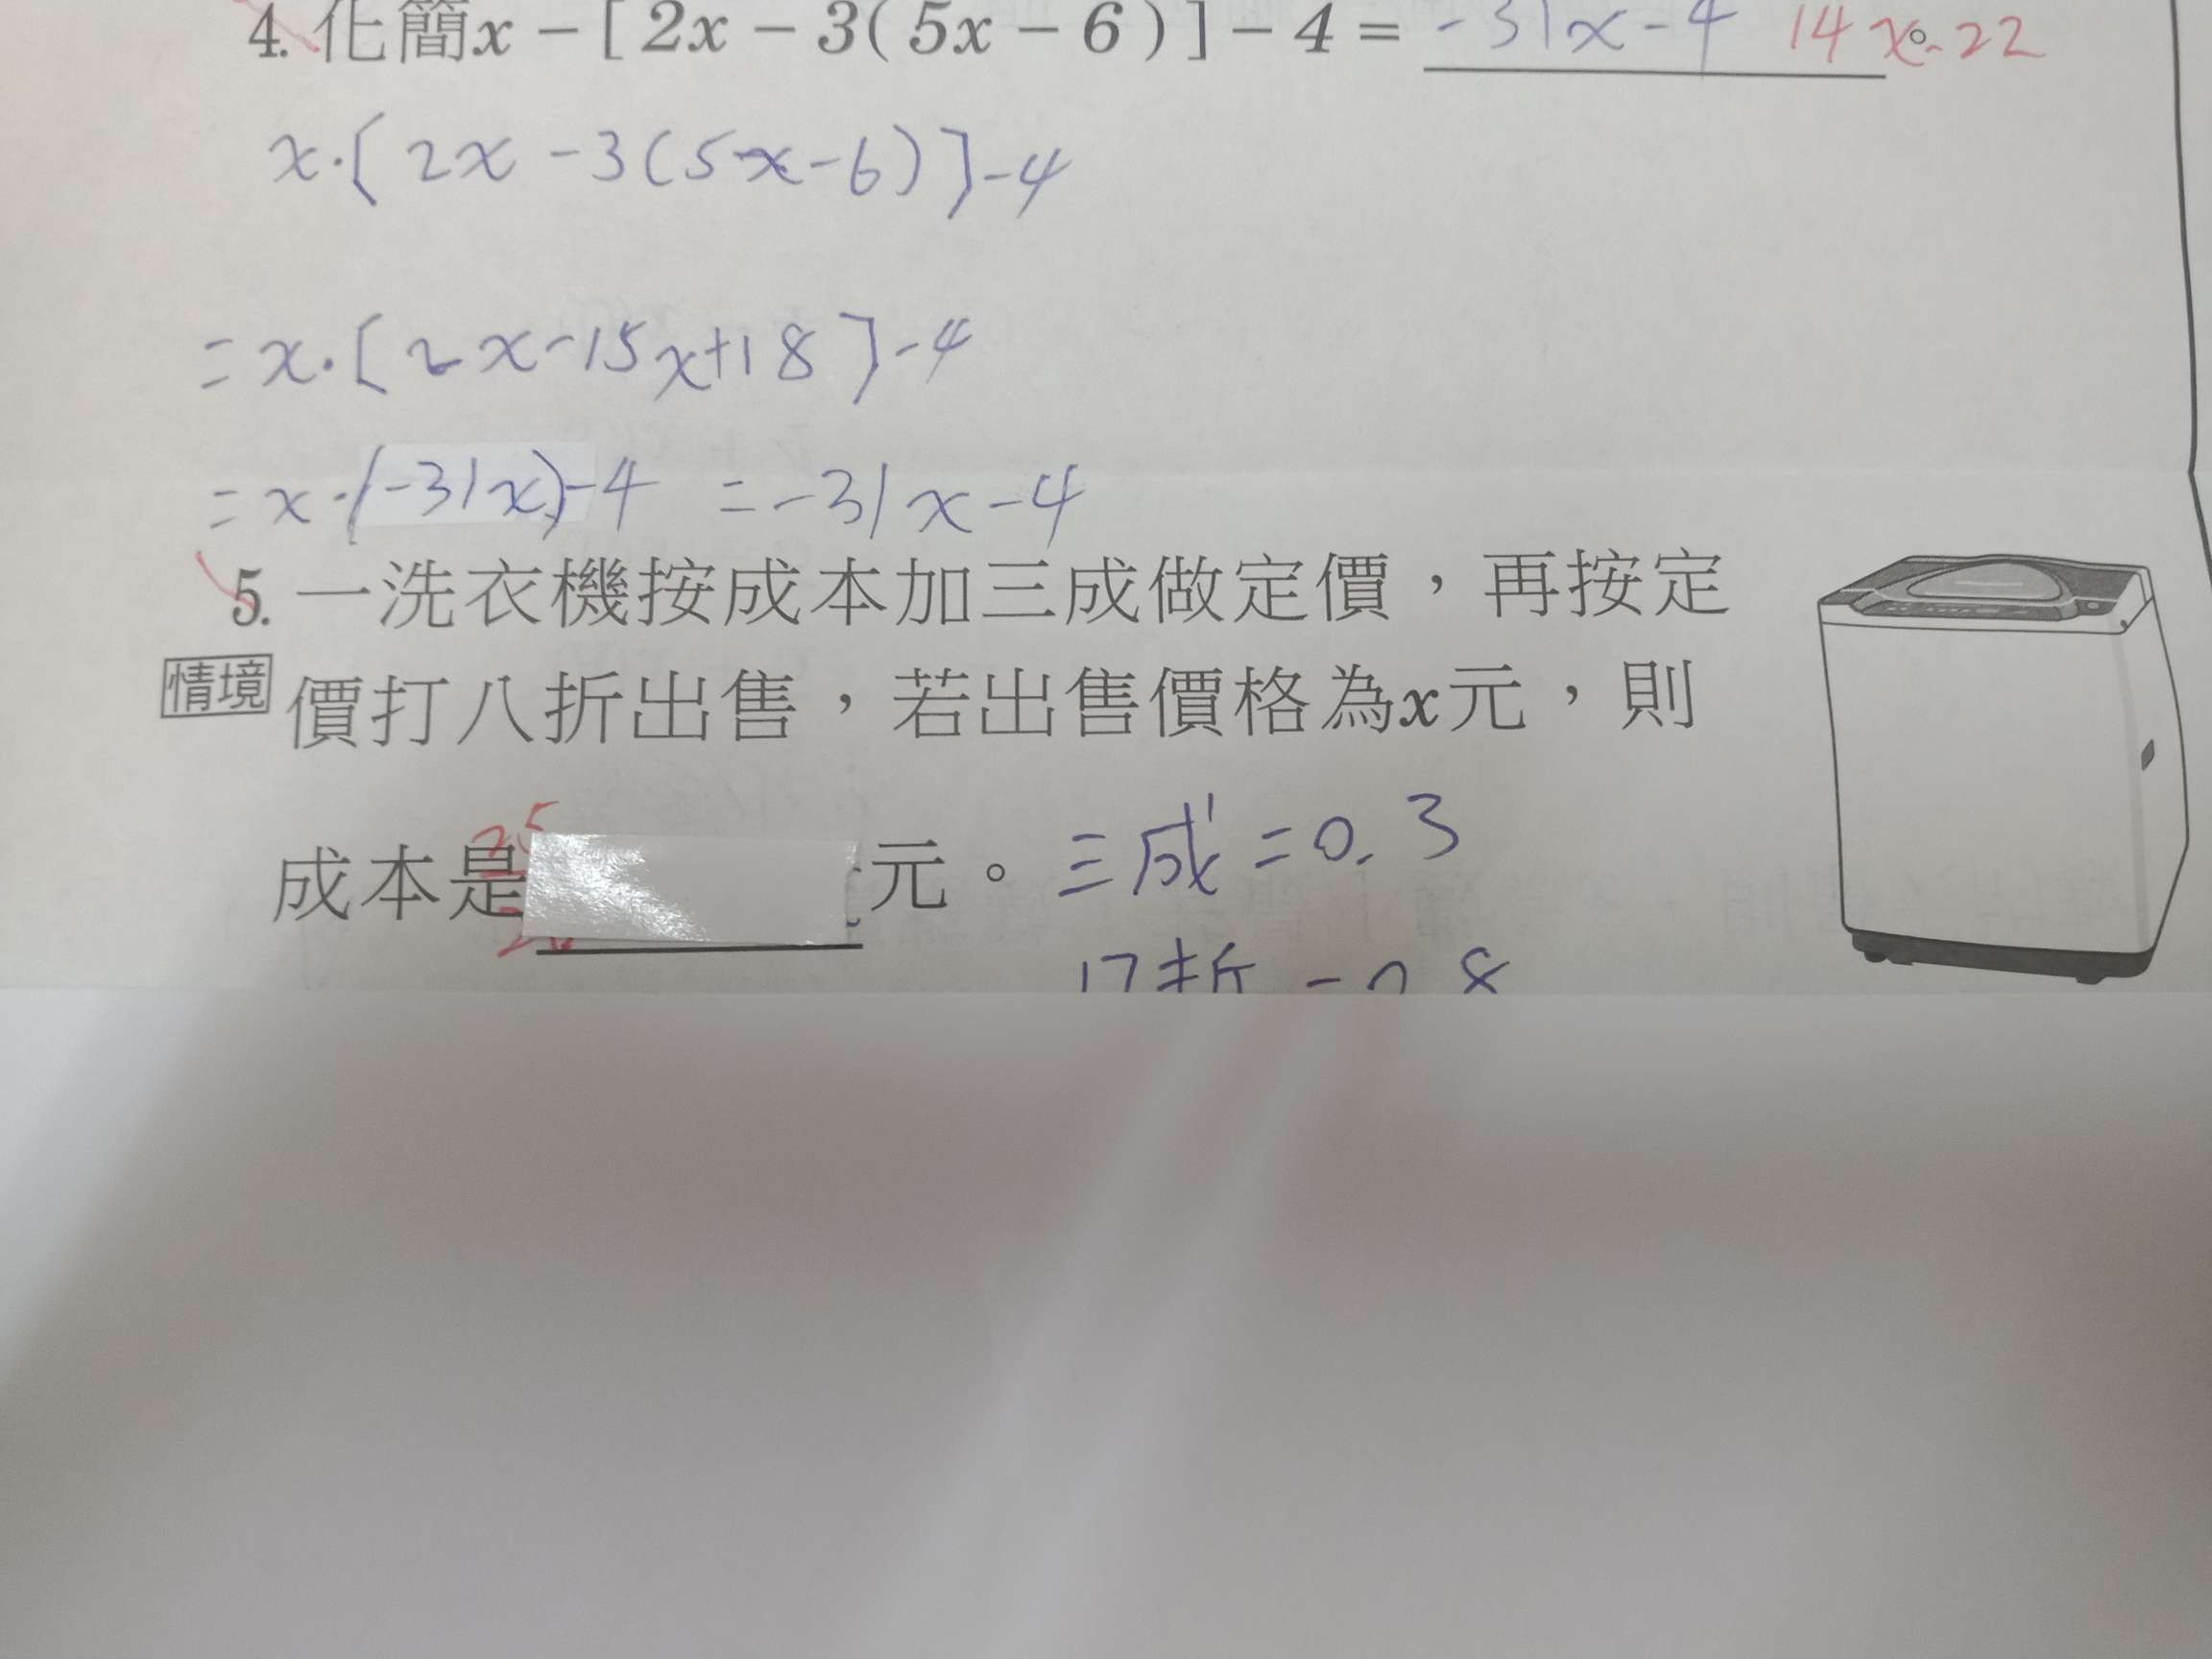 4. 化簡x－[2x－3(5x－6)]－4＝ -31x-4 14x-22 。
x·[2x-3(5x-6)]-4
=x·[2x-15x+18]-4
=x·(-31x)-4 =-31x-4
5. 一洗衣機按成本加三成做定價，再按定
情境 價打八折出售，若出售價格為x元，則
成本是 元。 三成=0.3